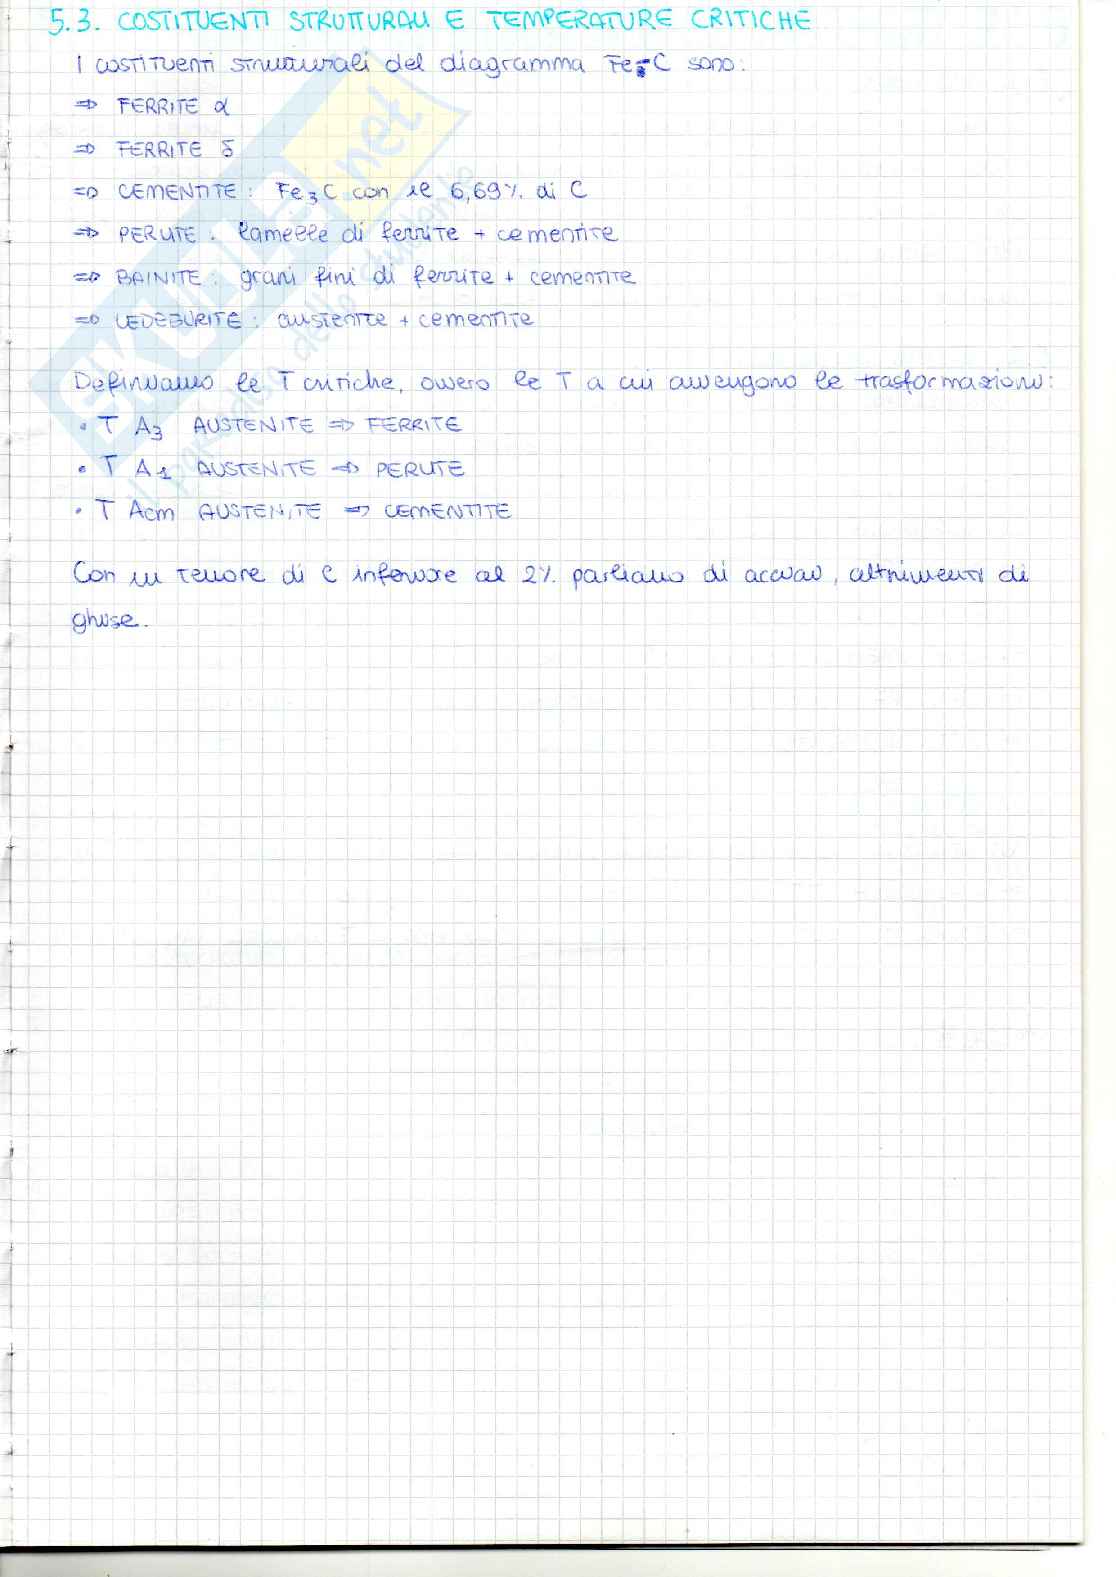 5.3. COSTITUENTI STRUTTURALI E TEMPERATURE CRITICHE
I costituenti strutturali del diagramma Fe-C sono:
⇒ FERRITE α
⇒ FERRITE δ
⇒ CEMENTITE: Fe₃C con il 6,69% di C
⇒ PERLITE: lamelle di ferrite + cementite
⇒ BAINITE: grani fini di ferrite + cementite
⇒ LEDEBURITE: austenite + cementite
Definiamo le T critiche, ovvero le T a cui avvengono le trasformazioni:
• T A₃ AUSTENITE ⇒ FERRITE
• T A₁ AUSTENITE ⇒ PERLITE
• T Acm AUSTENITE ⇒ CEMENTITE
Con un tenore di C inferiore al 2% parliamo di acciai, altrimenti di
ghise.
SKUOLA.net
il paradiso dello studente